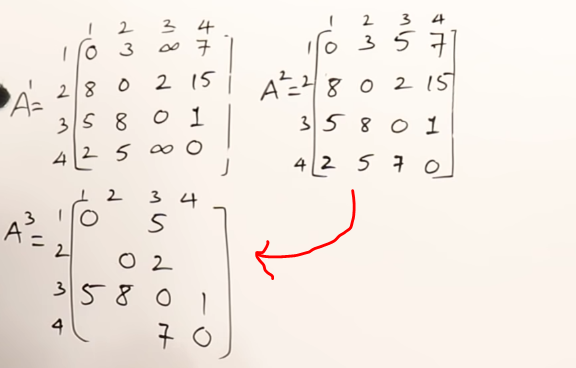 1 2 3 4
1 0 3 ∞ 7
A¹= 2 8 0 2 15
3 5 8 0 1
4 2 5 ∞ 0
1 2 3 4
1 0 3 5 7
A²= 2 8 0 2 15
3 5 8 0 1
4 2 5 7 0
1 2 3 4
A³= 1 0 5
2 0 2
3 5 8 0 1
4 7 0